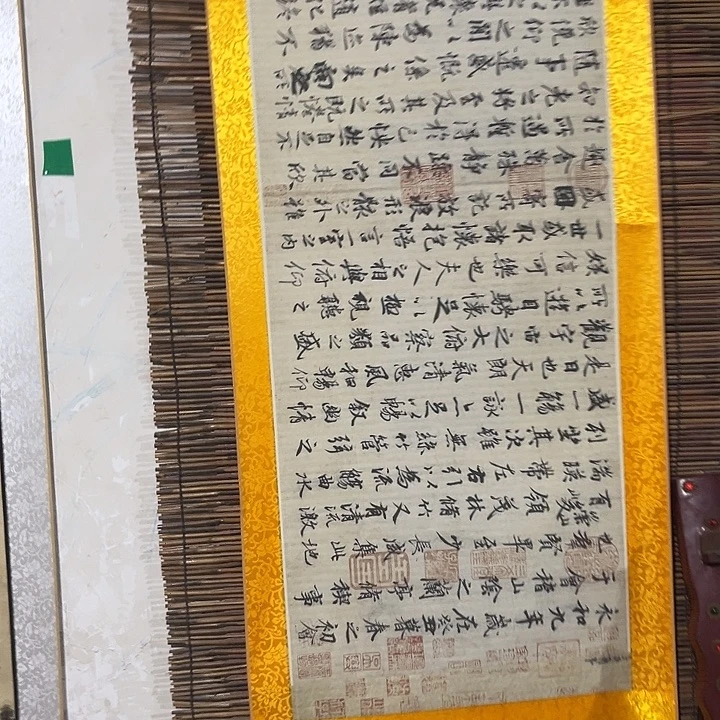 永和九年歲在癸丑暮春之初會
于會稽山陰之蘭亭脩稧事
也群賢畢至少長咸集此地
有崇山峻領茂林脩竹又有清流激
湍暎帶左右引以為流觴曲水
列坐其次雖無絲竹管弦之
盛一觴一詠亦足以暢敘幽情
是日也天朗氣清惠風和暢仰
觀宇宙之大俯察品類之盛
所以遊目騁懷足以極視聽之
娛信可樂也夫人之相與俯仰
一世或取諸懷抱悟言一室之內
或因寄所託放浪形骸之外雖
趣舍萬殊靜躁不同當其欣
於所遇暫得於己怏然自足不
知老之將至及其所之既惓情
隨事遷感慨係之矣向之所
欣俛仰之間以為陳迹猶不